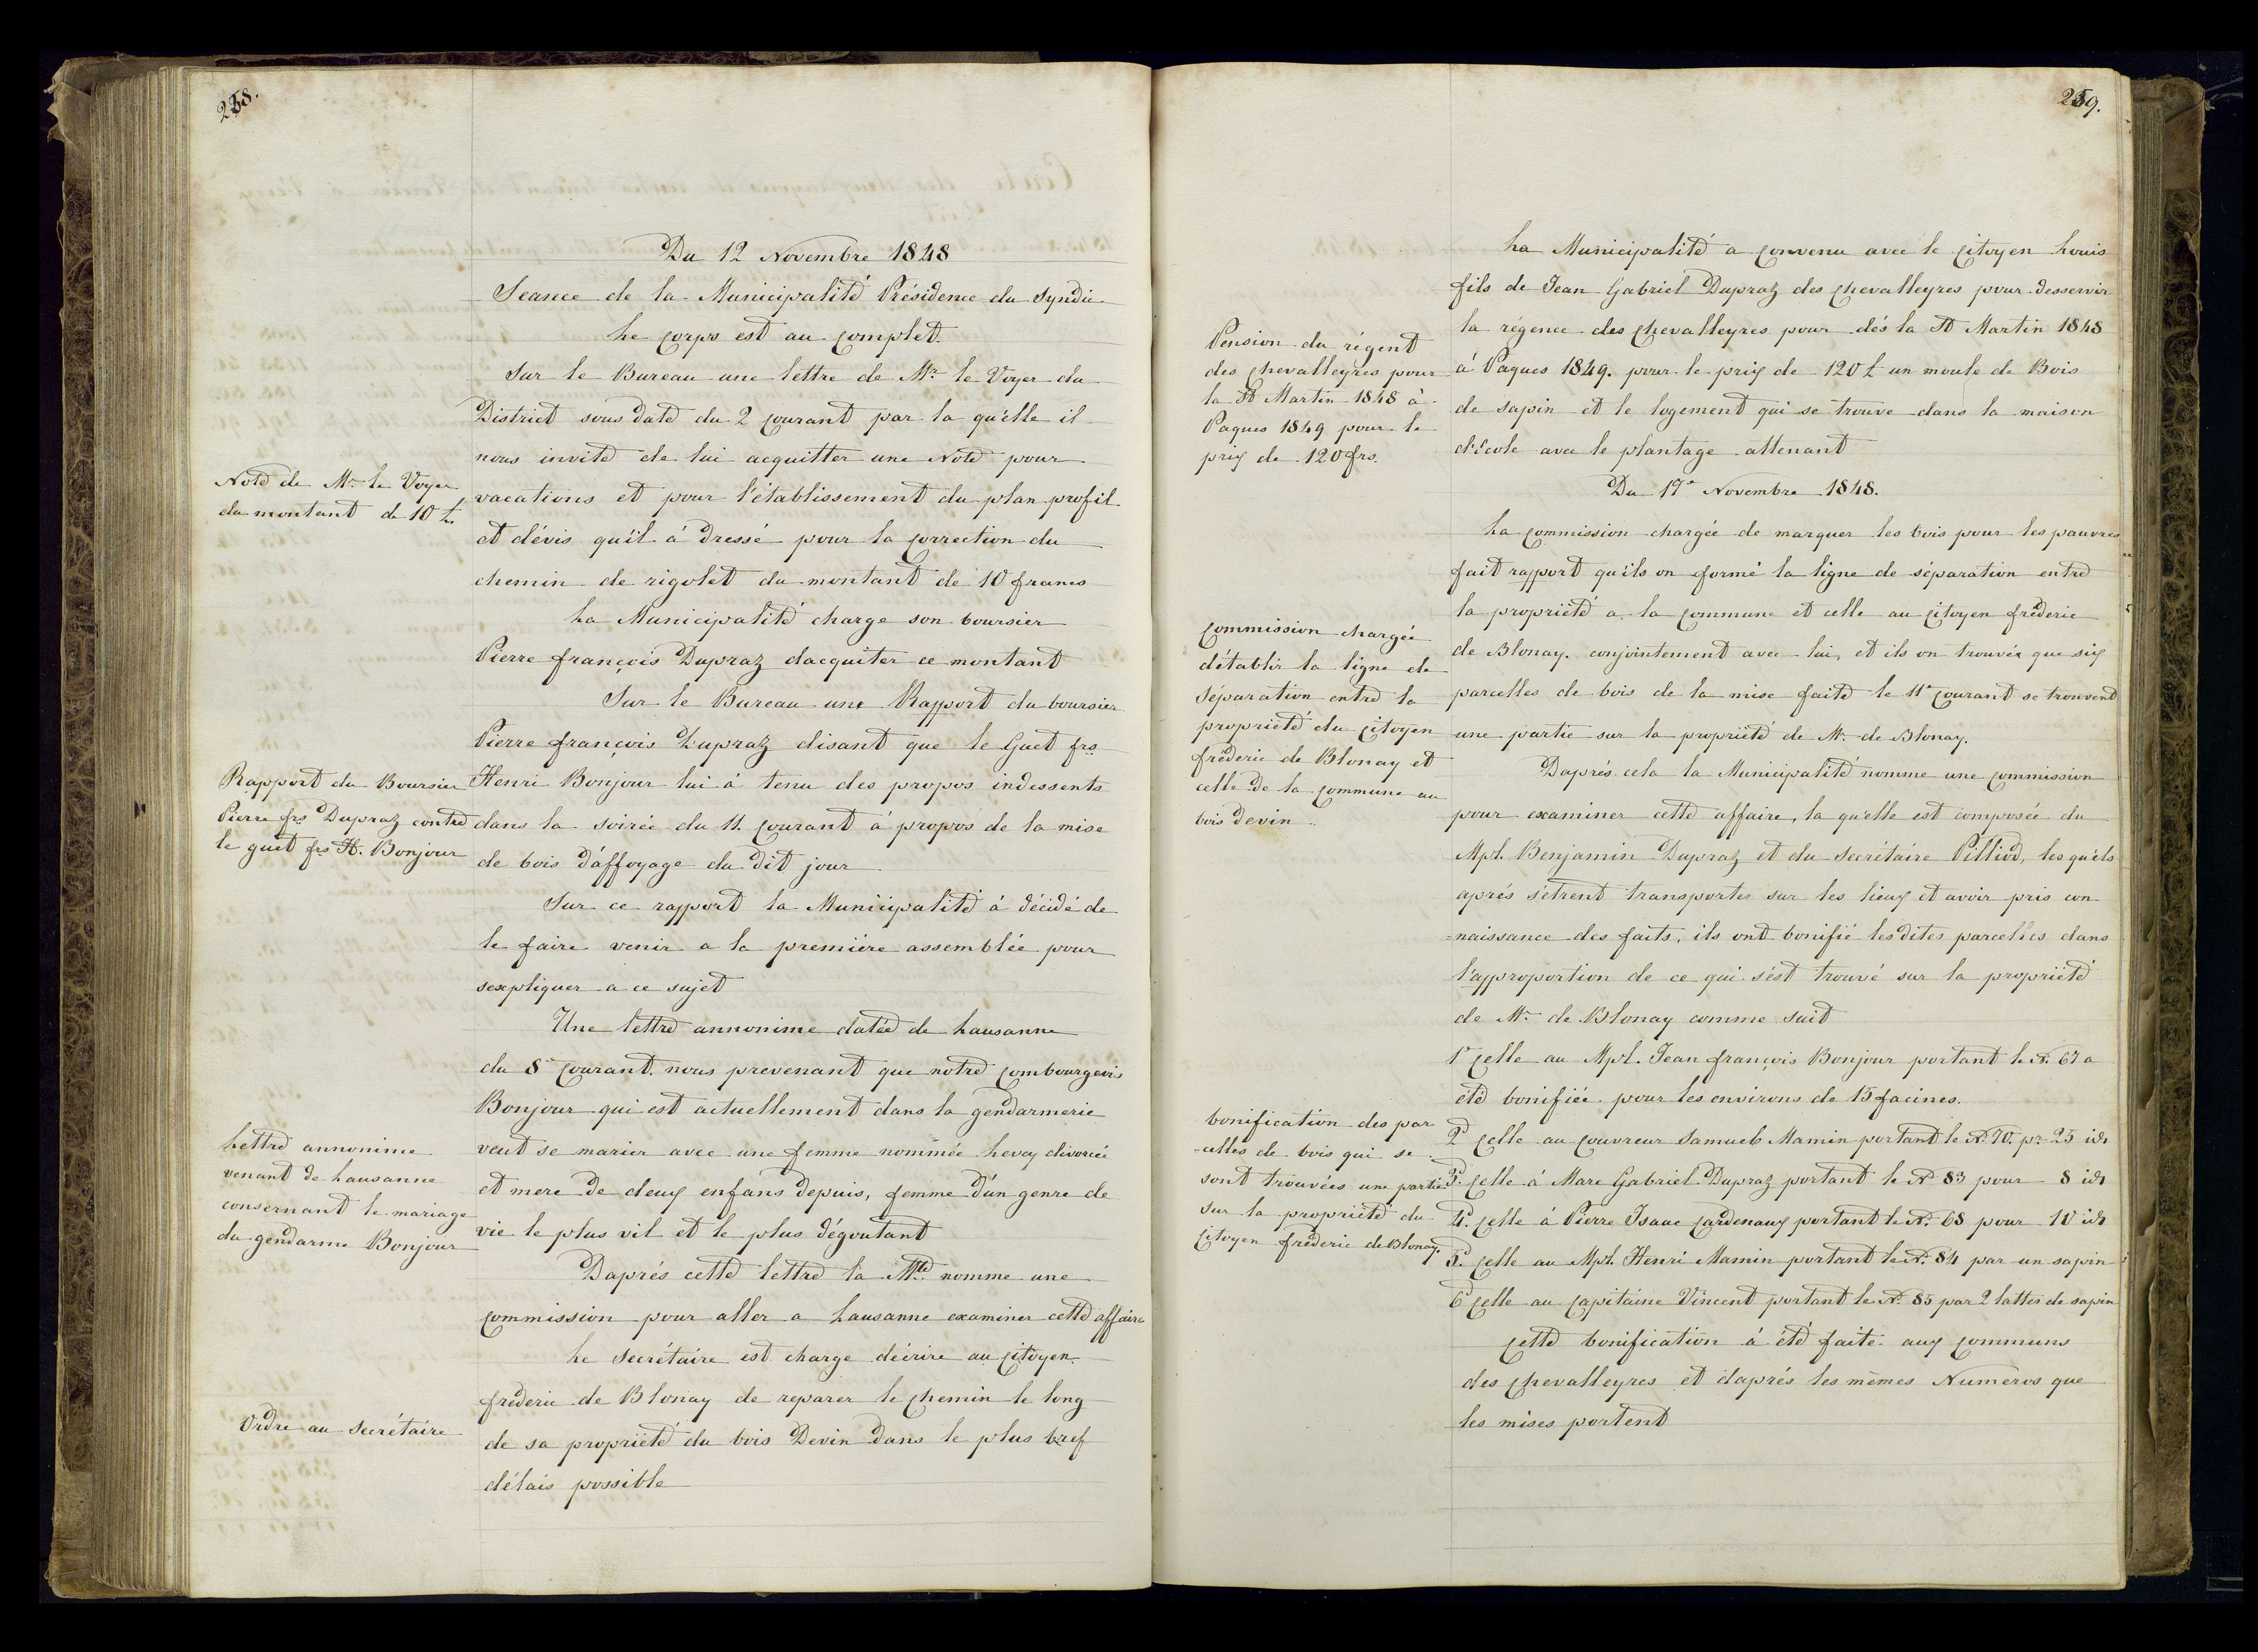 258.
Du 12 Novembre 1848
Seance de la Municipalité Présidence du Syndic
Le corps est au complet.
Sur le Bureau une lettre de Mr. le Voyer du
District sous date du 2 courant par la qu'elle il
nous invite de lui acquitter une Note pour
vacations et pour l'établissement du plan profil
et dévis qu'il à dressé pour la correction du
chemin de rigolet du montant de 10 francs
La Municipalité charge son boursier
Pierre françois Dupraz dacquiter ce montant
Sur le Bureau une Rapport du boursier
Pierre françois Dupraz disant que le Guet frs
Henri Bonjour lui à tenu des propos indessents
dans la soirée du 11. courant à propos de la mise
de bois d'affoyage du dit jour
Sur ce rapport la Municipalité à décidé de
le faire venir a la première assemblée pour
sexpliquer a ce sujet
Une lettre annonime datée de Lausanne
du 8e courant. nous prevenant que notre combourgeois
Bonjour qui est actuellement dans la gendarmerie
veut se marier avec une femme nommée Levey divorcée
et mere de deux enfans depuis, femme d'un genre de
vie le plus vil et le plus dégoutant
Daprés cette lettre la Mté nomme une
commission pour aller a Lausanne examiner cette affaire
Le Secrétaire est charge décrire au citoyen
fréderic de Blonay de reparer le chemin le long
de sa propriété du bois Devin dans le plus bref
délais possible
Note de Mr. le Voyer
du montant de 10 £
Rapport du Boursier
Pierre frs Dupraz contre
le guet frs H. Bonjour
Lettre annonime
venant de Lausanne
consernant le mariage
du gendarme Bonjour
Ordre au Secrétaire
259.
La Municipalité a convenu avec le citoyen Louis
fils de Jean Gabriel Dupraz des chevalleyres pour desservir
la régence des chevalleyres pour dés la St Martin 1848
á Paques 1849. pour le prix de 120 £ un moule de Bois
de sapin et le logement qui se trouve dans la maison
d'école avec le plantage attenant
Du 17e Novembre 1848.
La commission chargée de marquer les bois pour les pauvres
fait rapport qu'ils on formé la ligne de séparation entre
la propriété a la commune et celle au citoyen fréderic
de Blonay. conjointement avec lui, et ils on trouvée que six
parcelles de bois de la mise faite le 11e courant se trouvent
une partie sur la propriété de Mr. de Blonay.
Daprés cela la Municipalité nomme une commission
pour examiner cette affaire, la qu'elle est composée du
Mpl. Benjamin Dupraz et du Secrétaire Pilliod, les qu'els
aprés s'étrent transportes sur les lieux et avoir pris con
=naissance des faits, ils ont bonifié les dites parcelles dans
l'approportion de ce qui s'est trouvé sur la propriété
de Mr. de Blonay comme suit
1e celle au Mpl. Jean françois Bonjour portant le No. 67 a
été bonifiée pour les environs de 15 facines.
2d celle au couvreur Samueb Mamin portant le No. 70. pr. 25 ids
3d. celle á Marc Gabriel Dupraz portant le No 83 pour 8 ids
4d. celle à Pierre Isaac Cardenaux portant le No. 68 pour 10 ids
5d. celle au Mpl. Henri Mamin portant le No. 84 par un sapin
6d celle au capitaine Vincent portant le No. 85 par 2 lattes de sapin
cette bonification à été faite aux communs
des chevalleyres et daprés les mêmes Numéros que
les mises portent
Pension du régent
des chevalleyres pour
la St Martin 1848 à
Paques 1849 pour le
prix de 120 frs.
commission chargée
d'établir la ligne de
séparation entre la
propriété du citoyen
fréderic de Blonay et
celle de la commune au
bois devin
bonification des par
=celles de bois qui se
sont trouvées une partie
sur la propriété du
citoyen fréderic de Blonay.